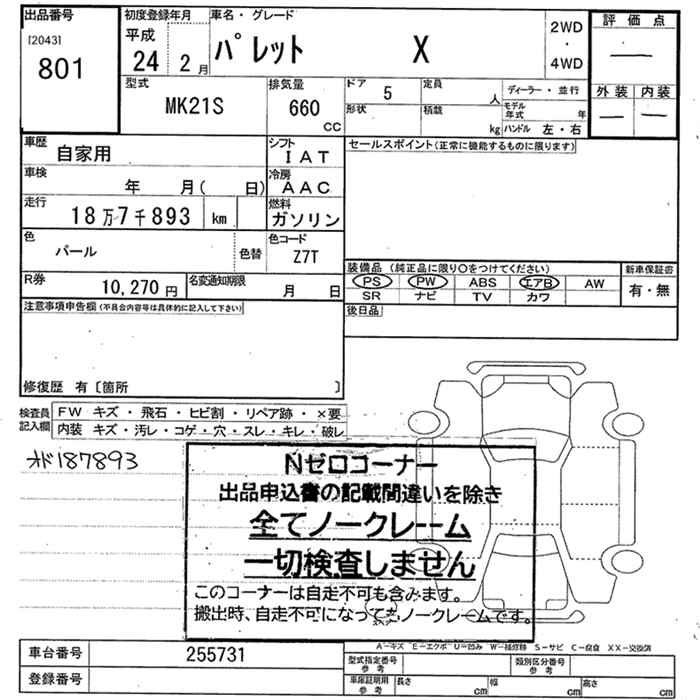 出品番号 初度登録年月 車名・グレード 評価点
[2043] 平成 2WD
801 24 2月 パレット X ・
4WD
型式 排気量 ドア 5 定員 人 ディーラー・並行 外装 内装
MK21S 660 CC 形状 積載 kg モデル年式 年
ハンドル 左・右
車歴 自家用 シフト IAT セールスポイント(正常に機能するものに限ります)
車検 年 月( 日) 冷房 AAC
走行 18万7千893 km 燃料 ガソリン
色 パール 色替 色コード Z7T
装備品 (純正品に限り○をつけてください) 新車保証書
R券 10,270円 名変通知期限 月 日 PS PW ABS エアB AW 有・無
SR ナビ TV カワ
注意事項申告欄(不具合内容等は具体的に記入して下さい) 後日品
修復歴 有 [箇所 ]
検査員記入欄 FW キズ・飛石・ヒビ割・リペア跡・×要
内装 キズ・汚レ・コゲ・穴・スレ・キレ・破レ
オド187893
Nゼロコーナー
出品申込書の記載間違いを除き
全てノークレーム
一切検査しません
このコーナーは自走不可も含みます。
搬出時、自走不可になってもノークレームです。
A-キズ E-エクボ U-凹み W-補修跡 S-サビ C-腐食 XX-交換済
車台番号 255731 型式指定番号 参考 類別区分番号 参考
登録番号 車庫証明用 参考 長さ cm 幅 cm 高さ cm